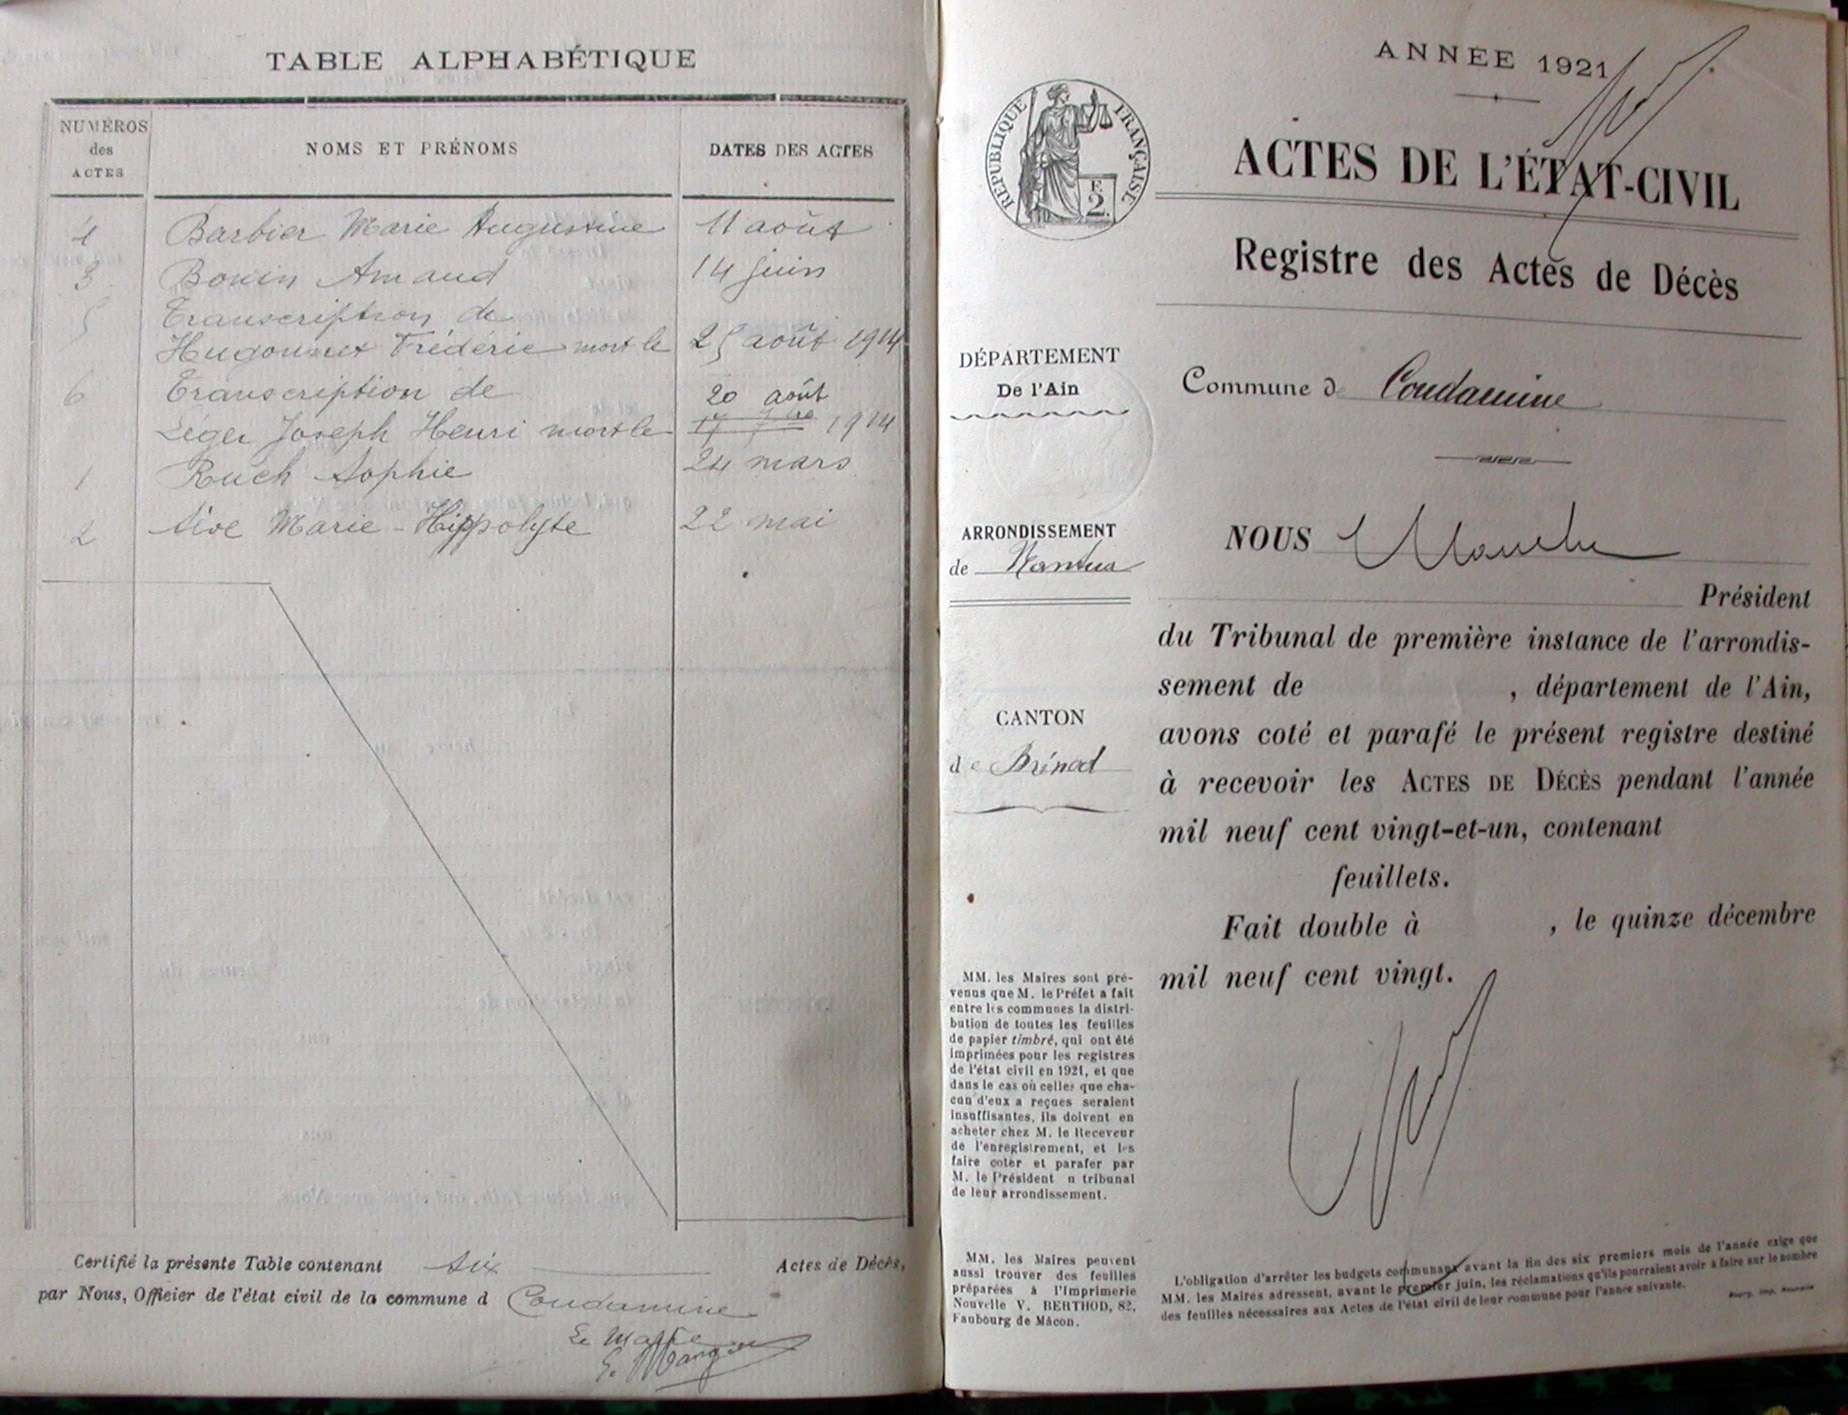 TABLE ALPHABÉTIQUE
NUMÉROS
des
ACTES
NOMS ET PRÉNOMS
DATES DES ACTES
4 Barbier Marie Augustine 11 août
3 Bonin Amand 14 juin
5 Transcription de
Hugonnet Frédéric mort le 25 août 1914
6 Transcription de 20 août
Léger Joseph Henri mort le 1914
1 Ruch Sophie 24 mars
2 Sive Marie-Hippolyte 22 mai
Certifié la présente Table contenant six Actes de Décès,
par Nous, Officier de l'état civil de la commune d Condamine
Le Maire
ANNÉE 1921
RÉPUBLIQUE FRANÇAISE
F.
2.
ACTES DE L'ÉTAT-CIVIL
Registre des Actes de Décès
DÉPARTEMENT
De l'Ain
Commune de Condamine
ARRONDISSEMENT
de Nantua
CANTON
de Brénod
NOUS
Président
du Tribunal de première instance de l'arrondis-
sement de , département de l'Ain,
avons coté et parafé le présent registre destiné
à recevoir les ACTES DE DÉCÈS pendant l'année
mil neuf cent vingt-et-un, contenant
feuillets.
Fait double à , le quinze décembre
mil neuf cent vingt.
MM. les Maires sont pré-
venus que M. le Préfet a fait
entre les communes la distri-
bution de toutes les feuilles
de papier timbré, qui ont été
imprimées pour les registres
de l'état civil en 1921, et que
dans le cas où celles que cha-
cun d'eux a reçues seraient
insuffisantes, ils doivent en
acheter chez M. le Receveur
de l'enregistrement, et les
faire coter et parafer par
M. le Président u tribunal
de leur arrondissement.
MM. les Maires peuvent
aussi trouver des feuilles
préparées à l'Imprimerie
Nouvelle V. BERTHOD, 82,
Faubourg de Mâcon.
L'obligation d'arrêter les budgets communaux avant la fin des six premiers mois de l'année exige que
MM. les Maires adressent, avant le premier juin, les réclamations qu'ils pourraient avoir à faire sur le nombre
des feuilles nécessaires aux Actes de l'état civil de leur commune pour l'année suivante.
Bourg, Imp. Nouvelle